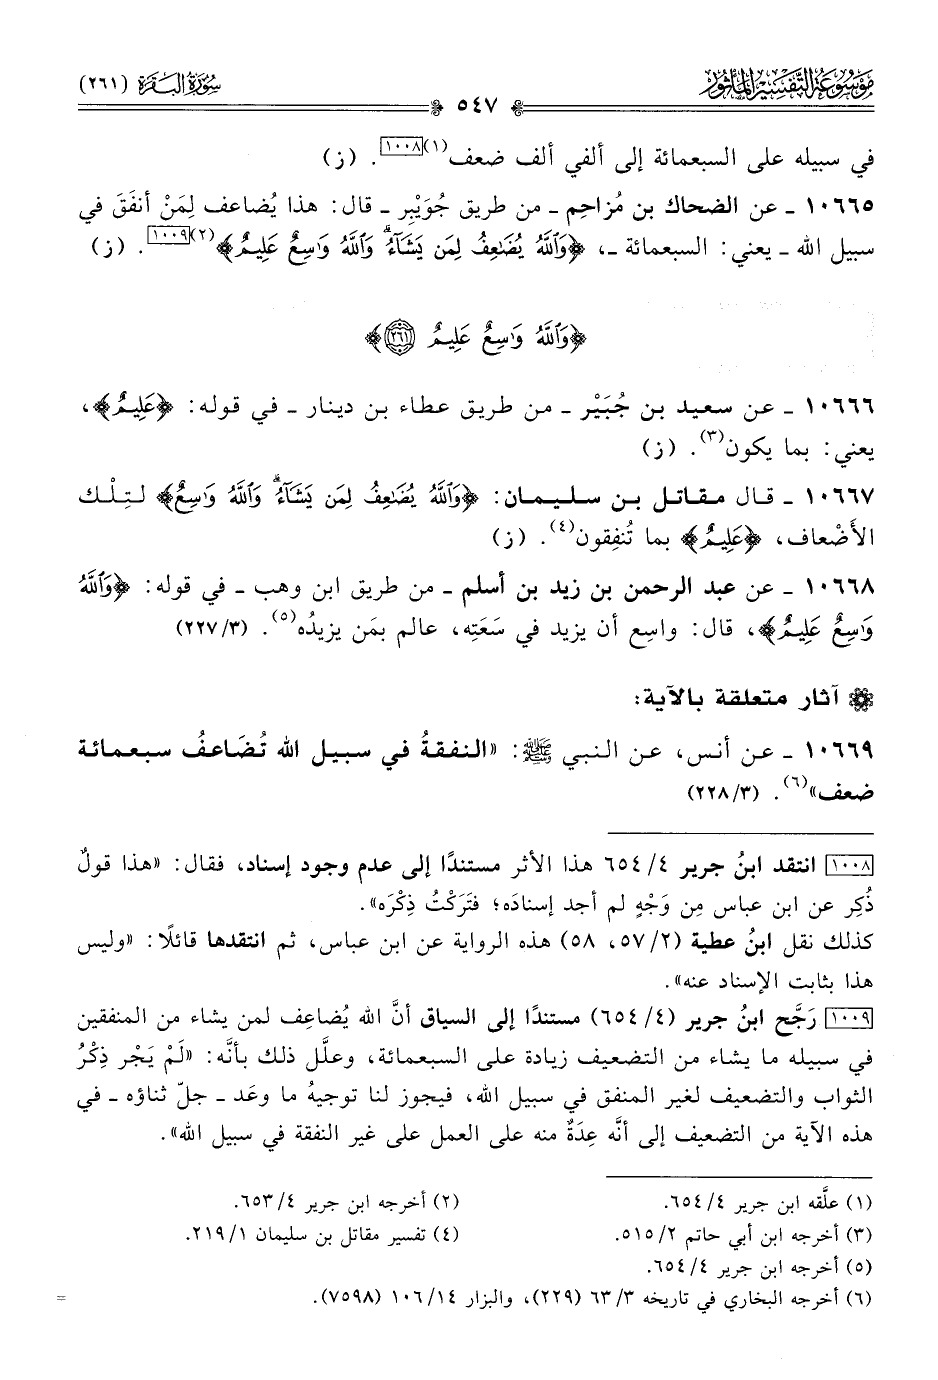 مَوْسُوعَة التَّفْسِيرِ المَأْثُور
سُورَةُ البَقَرَة (٢٦١)
٥٤٧
في سبيله على السبعمائة إلى ألفي ألف ضعف(١)[١٠٠٨]. (ز)
١٠٦٦٥ ـ عن الضحاك بن مُزاحِم ـ من طريق جُوَيْبِر ـ قال: هذا يُضاعف لِمَنْ أنفَقَ في
سبيل الله ـ يعني: السبعمائة ـ، ﴿وَٱللَّهُ يُضَٰعِفُ لِمَن يَشَآءُۗ وَٱللَّهُ وَٰسِعٌ عَلِيمٌ﴾(٢)[١٠٠٩]. (ز)
﴿وَٱللَّهُ وَٰسِعٌ عَلِيمٌ ٢٦١﴾
١٠٦٦٦ ـ عن سعيد بن جُبَيْر ـ من طريق عطاء بن دينار ـ في قوله: ﴿عَلِيمٌ﴾،
يعني: بما يكون(٣). (ز)
١٠٦٦٧ ـ قال مقاتل بن سليمان: ﴿وَٱللَّهُ يُضَٰعِفُ لِمَن يَشَآءُۗ وَٱللَّهُ وَٰسِعٌ﴾ لتِلْك
الأَضْعاف، ﴿عَلِيمٌ﴾ بما تُنفِقون(٤). (ز)
١٠٦٦٨ ـ عن عبد الرحمن بن زيد بن أسلم ـ من طريق ابن وهب ـ في قوله: ﴿وَٱللَّهُ
وَٰسِعٌ عَلِيمٌ﴾، قال: واسِع أن يزيد في سَعَتِه، عالم بمَن يزيدُه(٥). (٣/٢٢٧)
آثار متعلقة بالآية:
١٠٦٦٩ ـ عن أنس، عن النبي ﷺ: «النفقةُ في سبيل الله تُضَاعَفُ سبعمائة
ضعف»(٦). (٣/٢٢٨)
[١٠٠٨] انتقد ابنُ جرير ٤/٦٥٤ هذا الأثر مستندًا إلى عدم وجود إسناد، فقال: «هذا قولٌ
ذُكِر عن ابن عباس مِن وَجْهٍ لم أجد إسنادَه؛ فتَرَكْتُ ذِكْرَه».
كذلك نقل ابنُ عطية (٢/٥٧، ٥٨) هذه الرواية عن ابن عباس، ثم انتقدها قائلًا: «وليس
هذا بثابت الإسناد عنه».
[١٠٠٩] رَجَّح ابنُ جرير (٤/٦٥٤) مستندًا إلى السياق أنَّ الله يُضاعِف لمن يشاء من المنفقين
في سبيله ما يشاء من التضعيف زيادة على السبعمائة، وعلَّل ذلك بأنَّه: «لَمْ يَجْرِ ذِكْرُ
الثواب والتضعيف لغير المنفق في سبيل الله، فيجوز لنا توجيهُ ما وعَد ـ جلّ ثناؤه ـ في
هذه الآية من التضعيف إلى أنَّه عِدَةٌ منه على العمل على غير النفقة في سبيل الله».
(١) علَّقه ابن جرير ٤/٦٥٤.
(٢) أخرجه ابن جرير ٤/٦٥٣.
(٣) أخرجه ابن أبي حاتم ٢/٥١٥.
(٤) تفسير مقاتل بن سليمان ١/٢١٩.
(٥) أخرجه ابن جرير ٤/٦٥٤.
(٦) أخرجه البخاري في تاريخه ٣/٦٣ (٢٢٩)، والبزار ١٤/١٠٦ (٧٥٩٨).
=